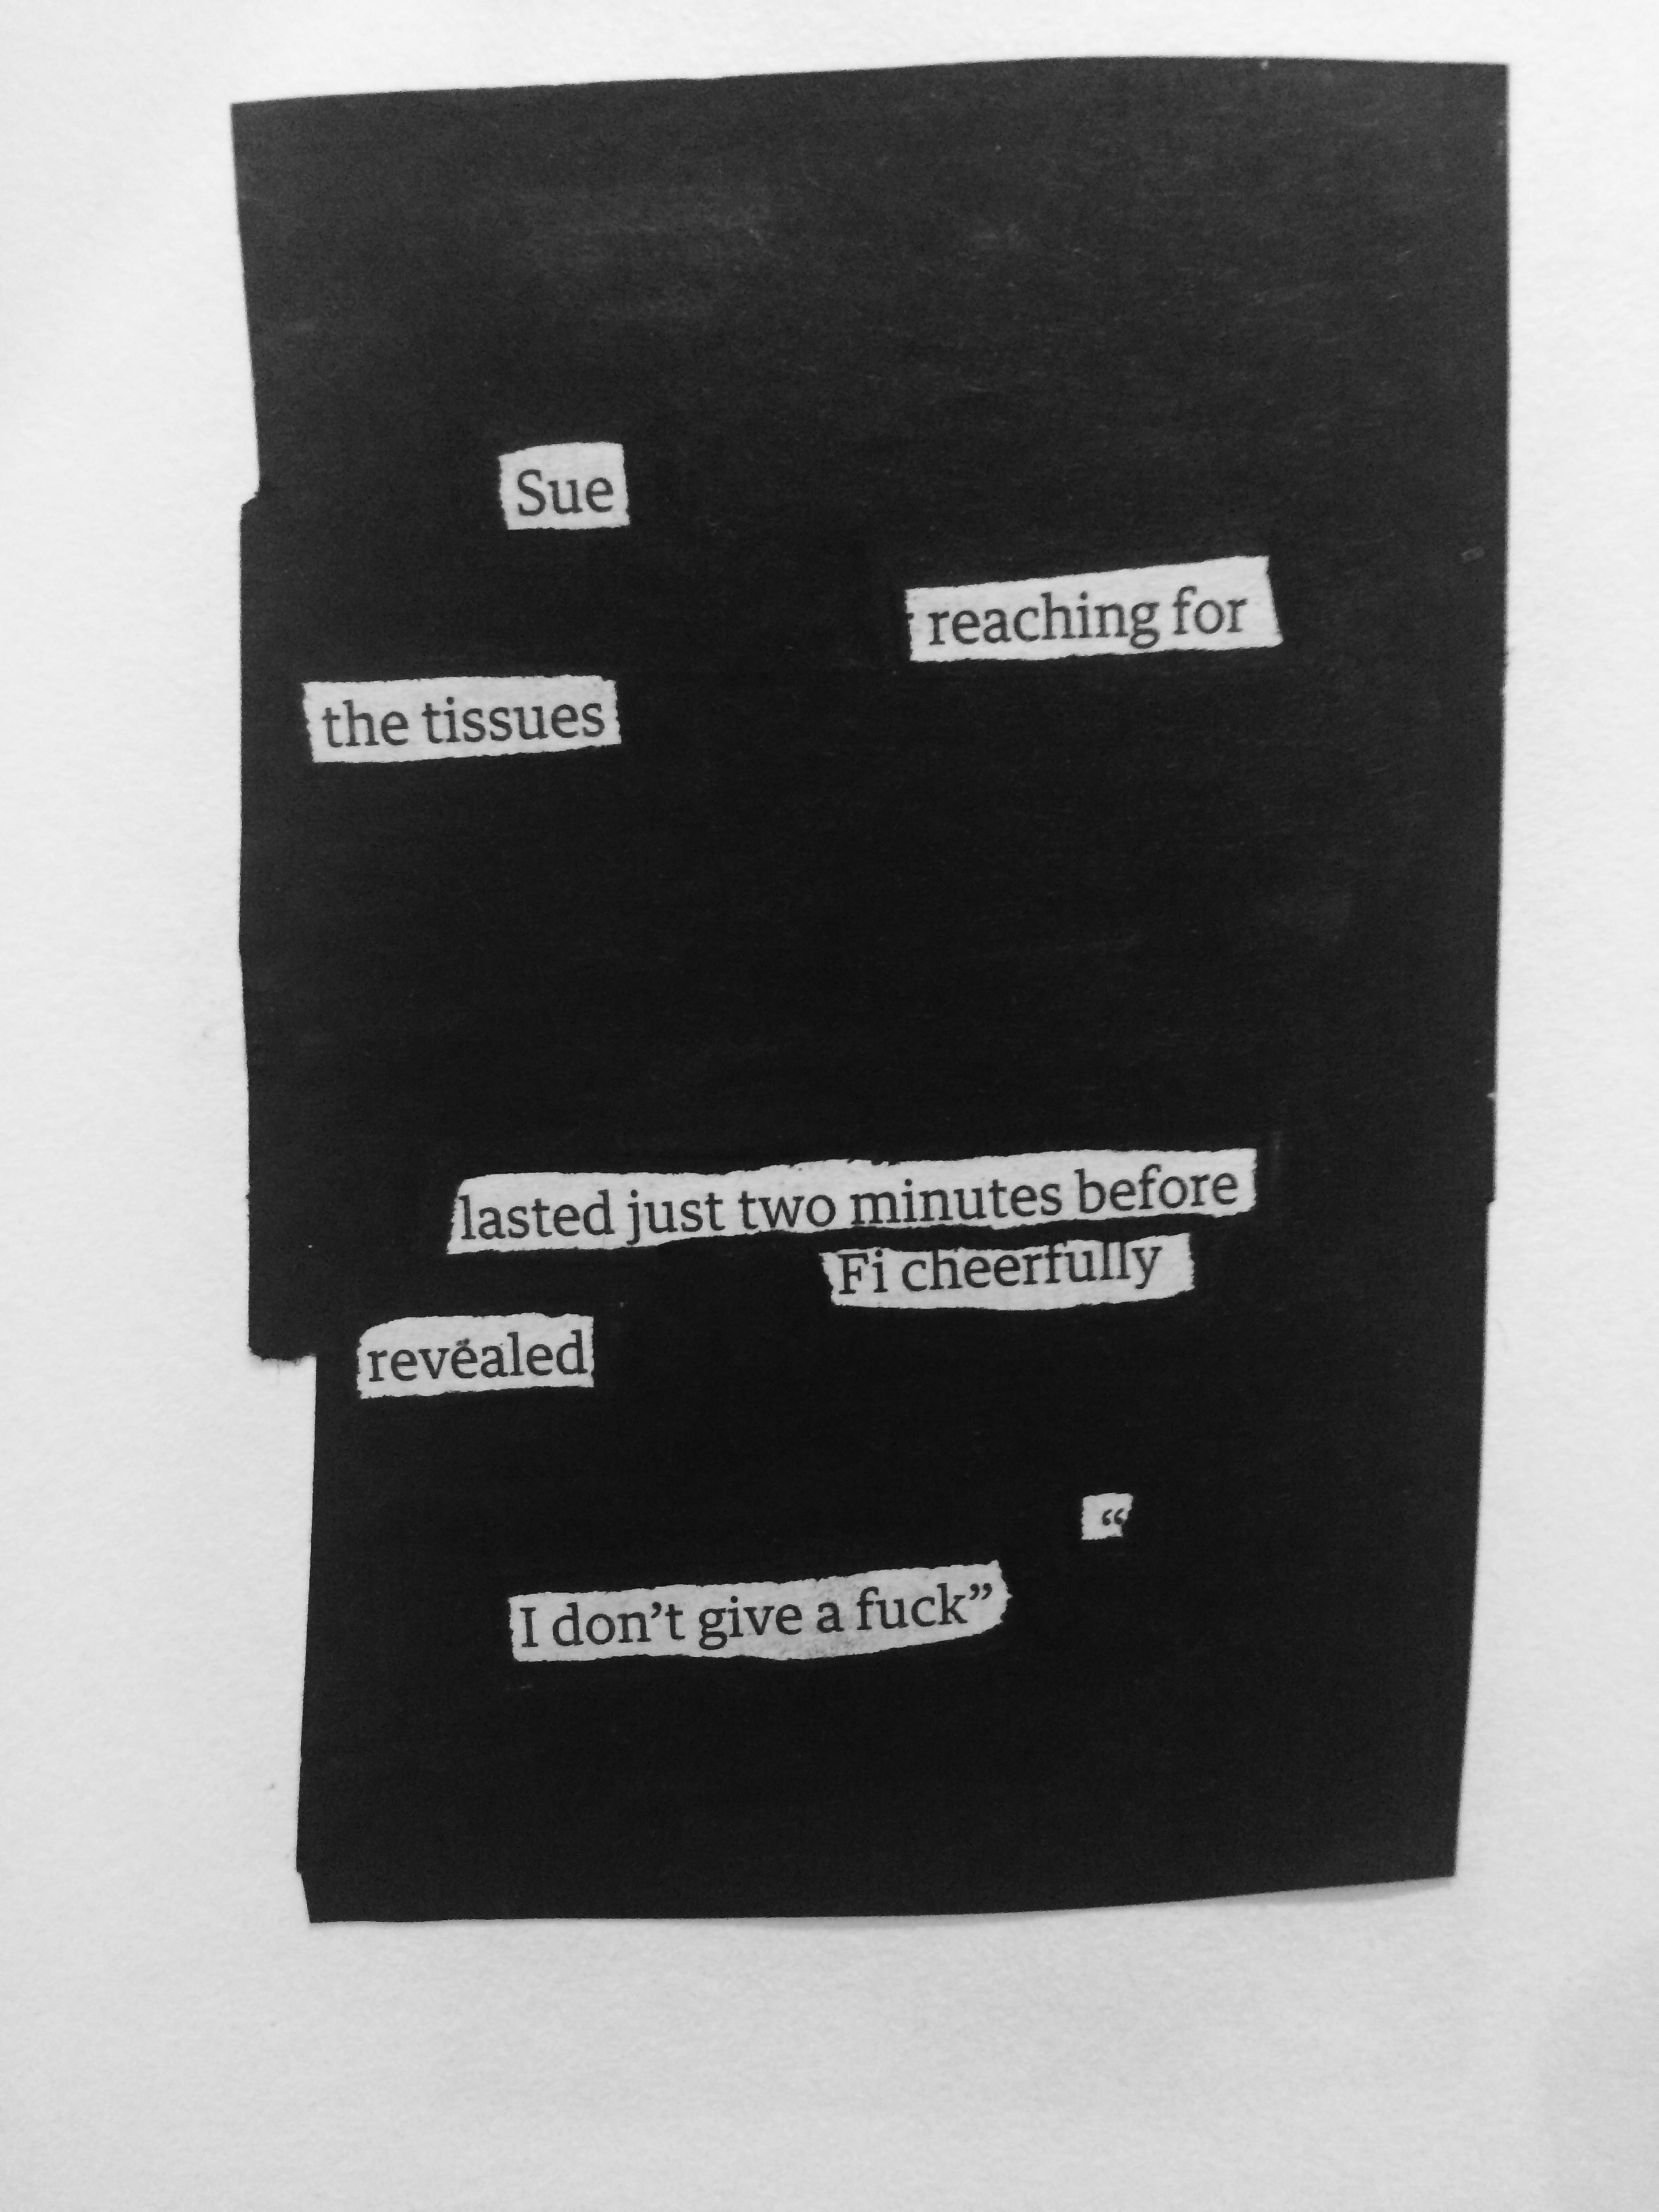 Sue
reaching for
the tissues
lasted just two minutes before
Fi cheerfully
revealed
“
I don’t give a fuck”